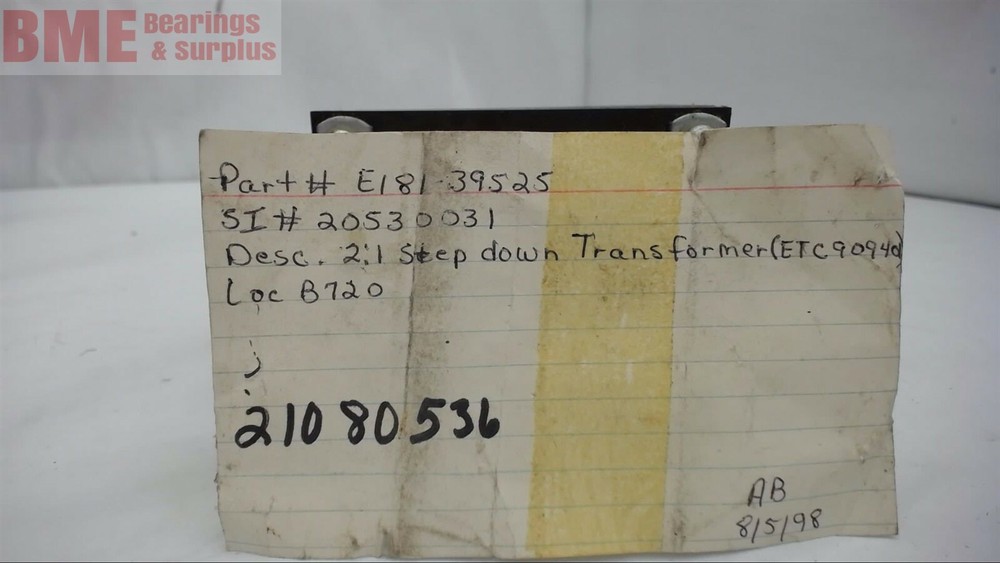 BME Bearings & Surplus
Part # E181-39525
SI # 20530031
Desc. 2:1 Step down Transformer (ETC90940)
Loc B720
21080536
AB
8/5/98